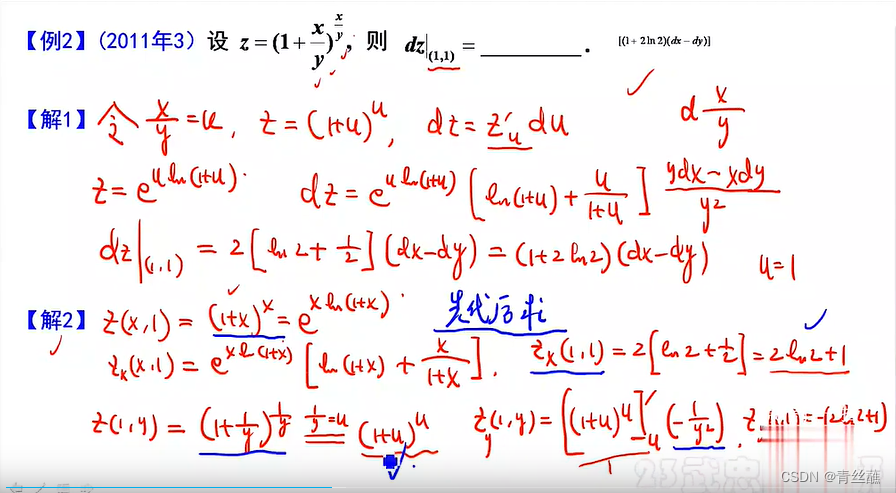 【例2】(2011年3) 设 z = (1+x/y)^(x/y), 则 dz|(1,1) = ________. [(1+2 ln 2)(dx−dy)]
【解1】 令 x/y = u, z = (1+u)^u, dz = z'_u du d x/y
z = e^(u ln(1+u)) dz = e^(u ln(1+u)) [ln(1+u) + u/(1+u)] (ydx−xdy)/y²
dz|(1,1) = 2[ln2 + 1/2](dx−dy) = (1+2ln2)(dx−dy) u=1
【解2】 z(x,1) = (1+x)^x = e^(x ln(1+x)) 先代后求
z_x(x,1) = e^(x ln(1+x)) [ln(1+x) + x/(1+x)]. z_x(1,1) = 2[ln2 + 1/2] = 2ln2+1
z(1,y) = (1+1/y)^(1/y) 1/y=u (1+u)^u z_y(1,y) = [(1+u)^u]'_u (−1/y²), (1,1)=−(2ln2+1)
CSDN @青丝蘸